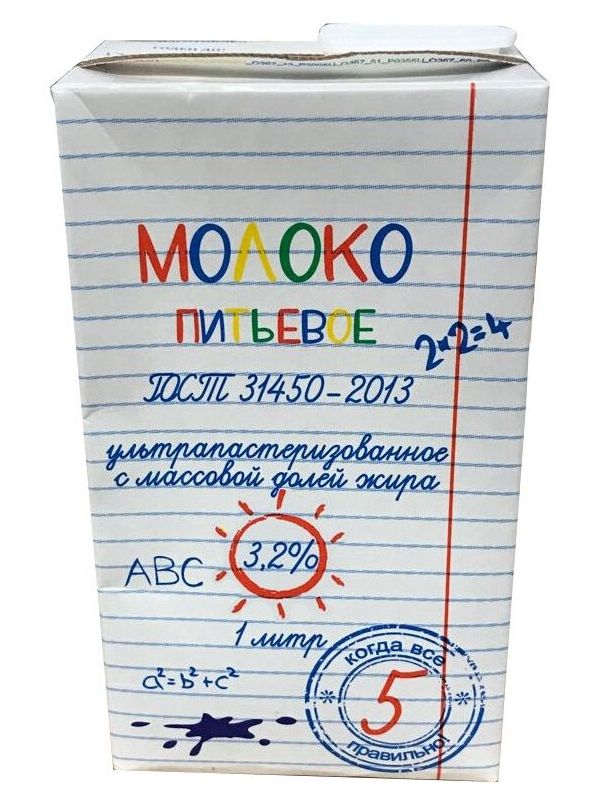 МОЛОКО
ПИТЬЕВОЕ
2×2=4
ГОСТ 31450-2013
ультрапастеризованное
с массовой долей жира
3,2%
ABC
1 литр
a²=b²+c²
когда все
5
правильно!